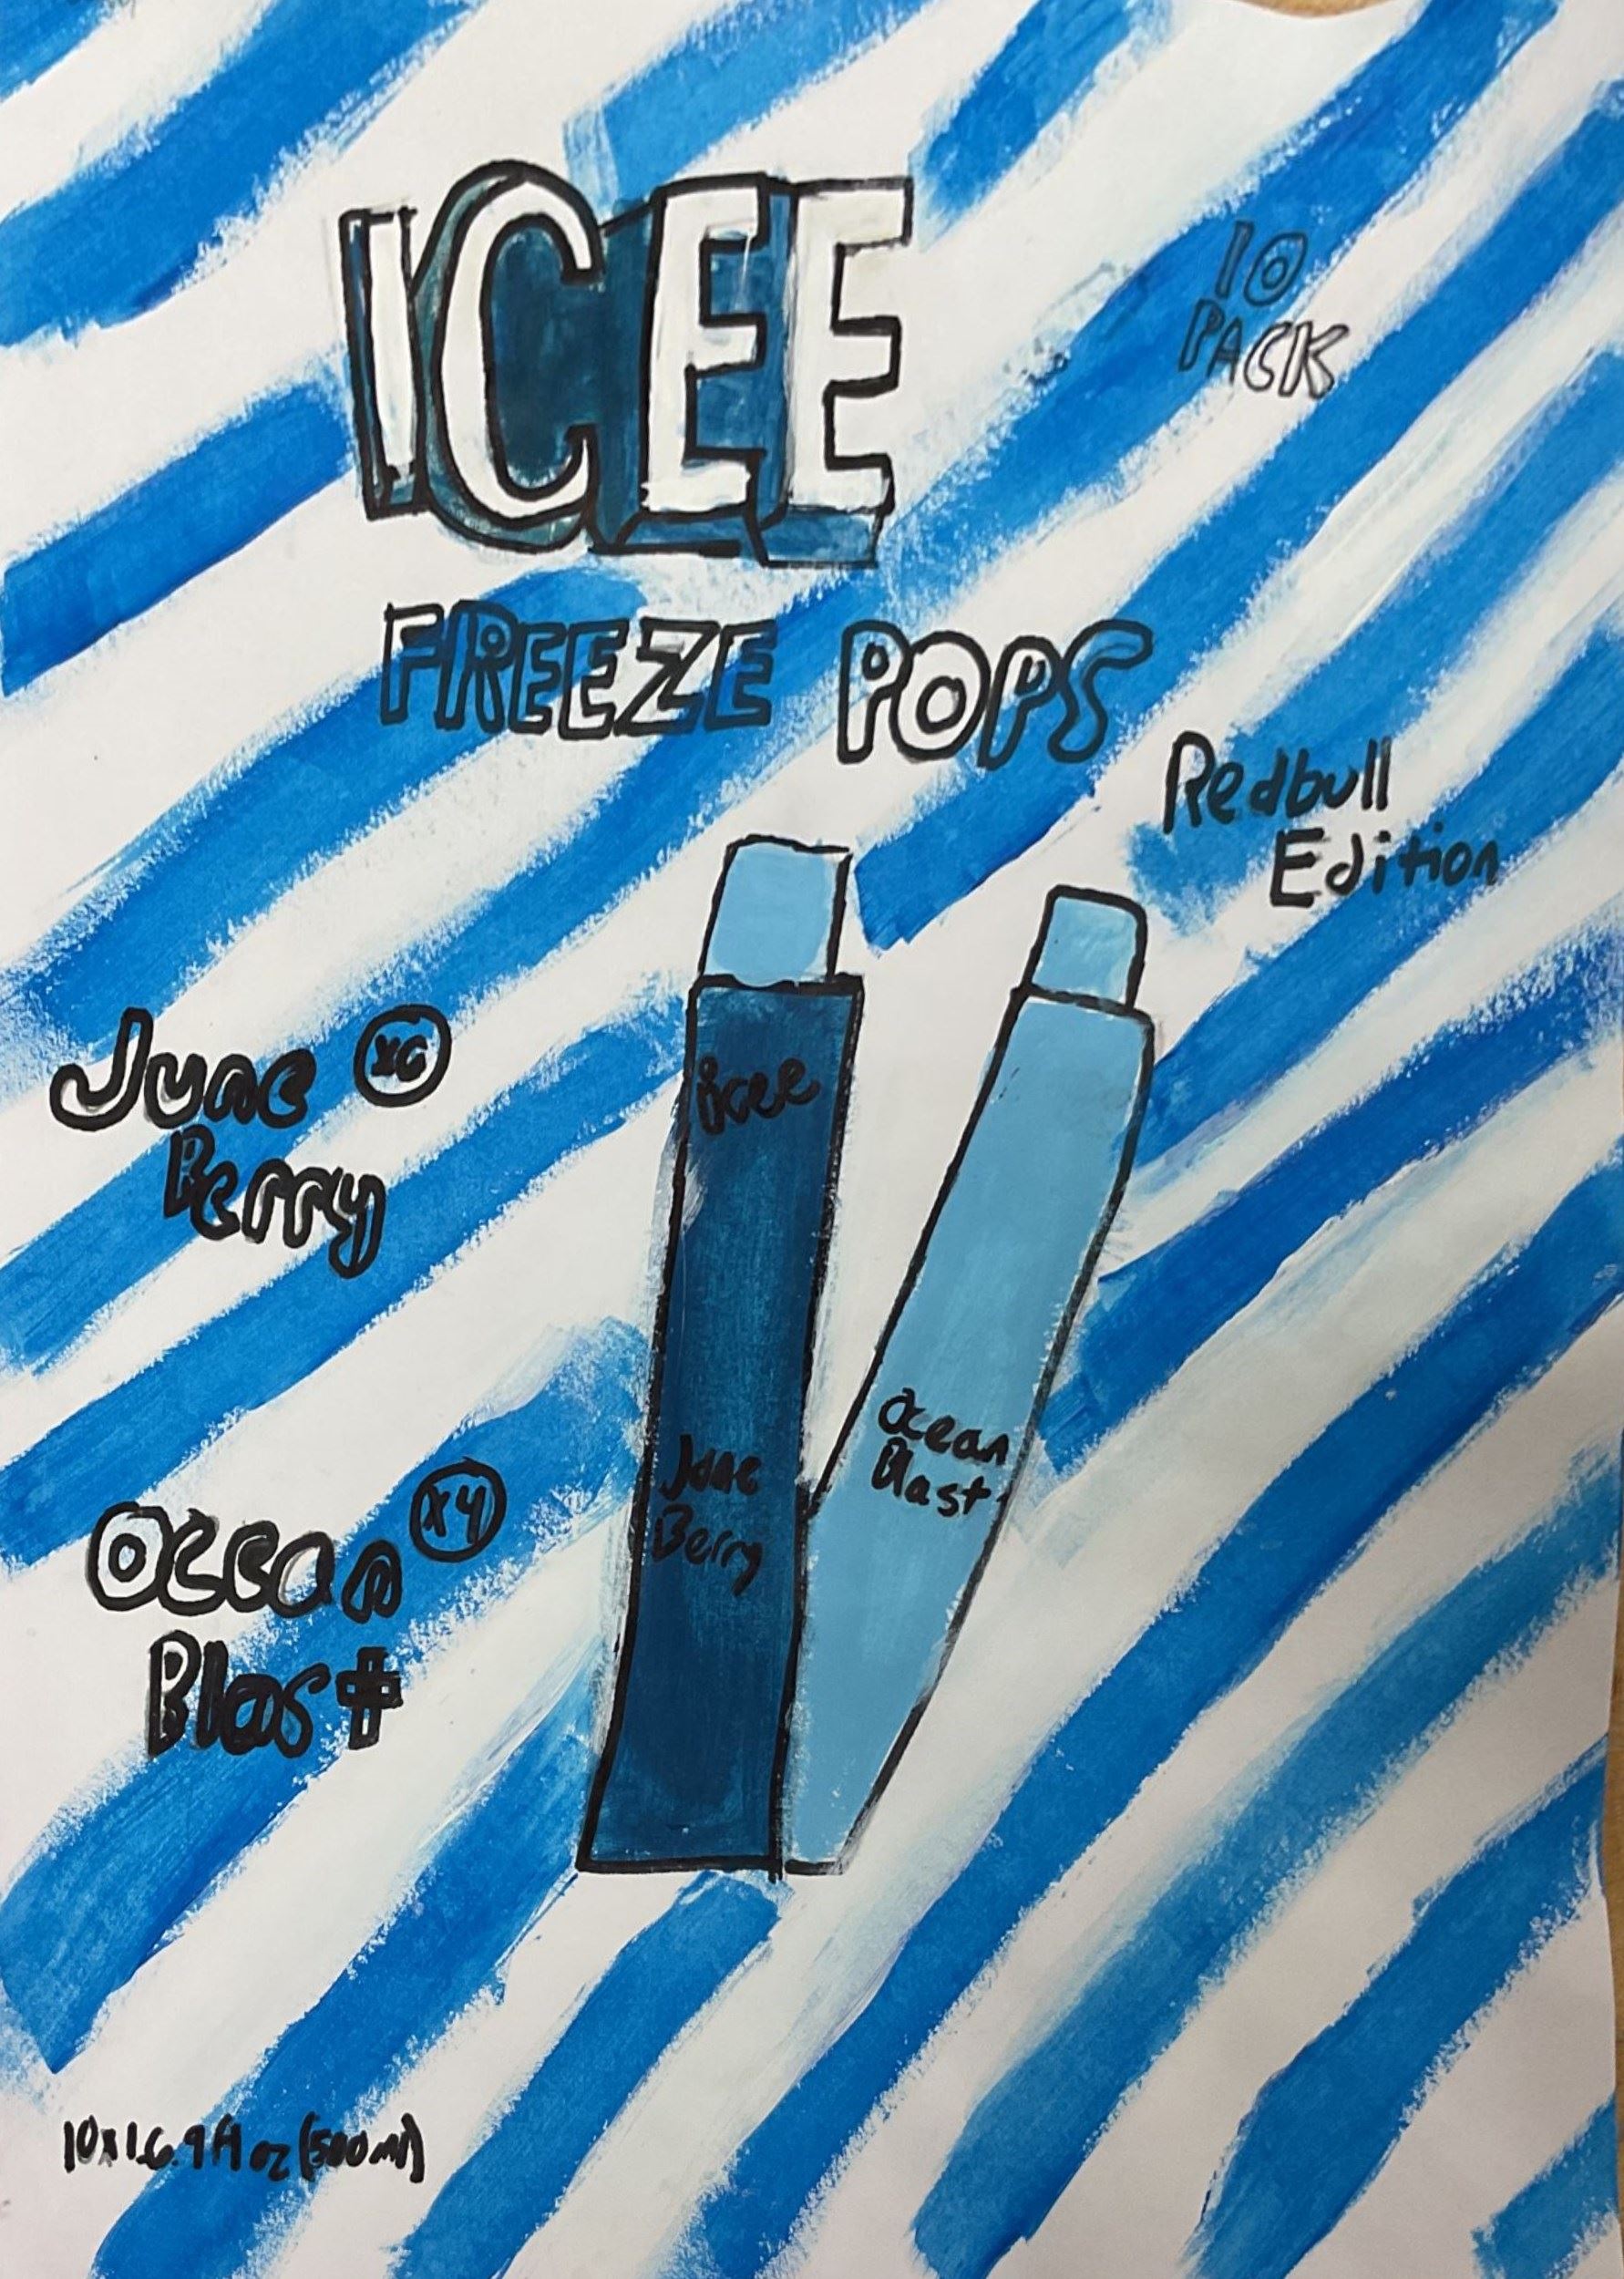 ICEE
10
PACK
FREEZE POPS
Redbull
Edition
June x6
Berry
Icee
June
Berry
Ocean
Blast
Ocean x4
Blast
10x16.9fl oz (500ml)